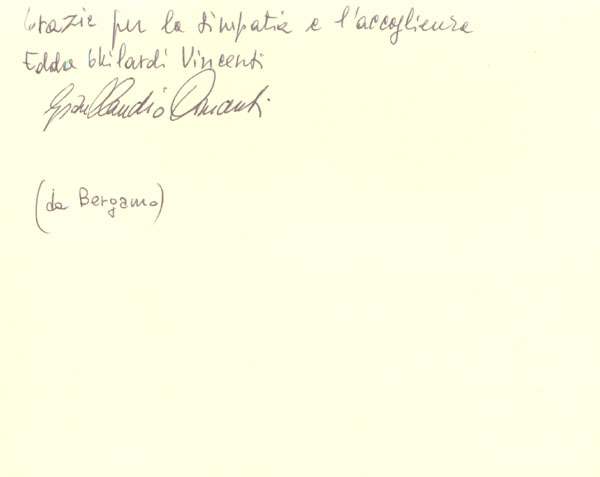 Grazie per la simpatia e l'accoglienza
Edda Ghilardi Vincenti
Gian Claudio
(da Bergamo)